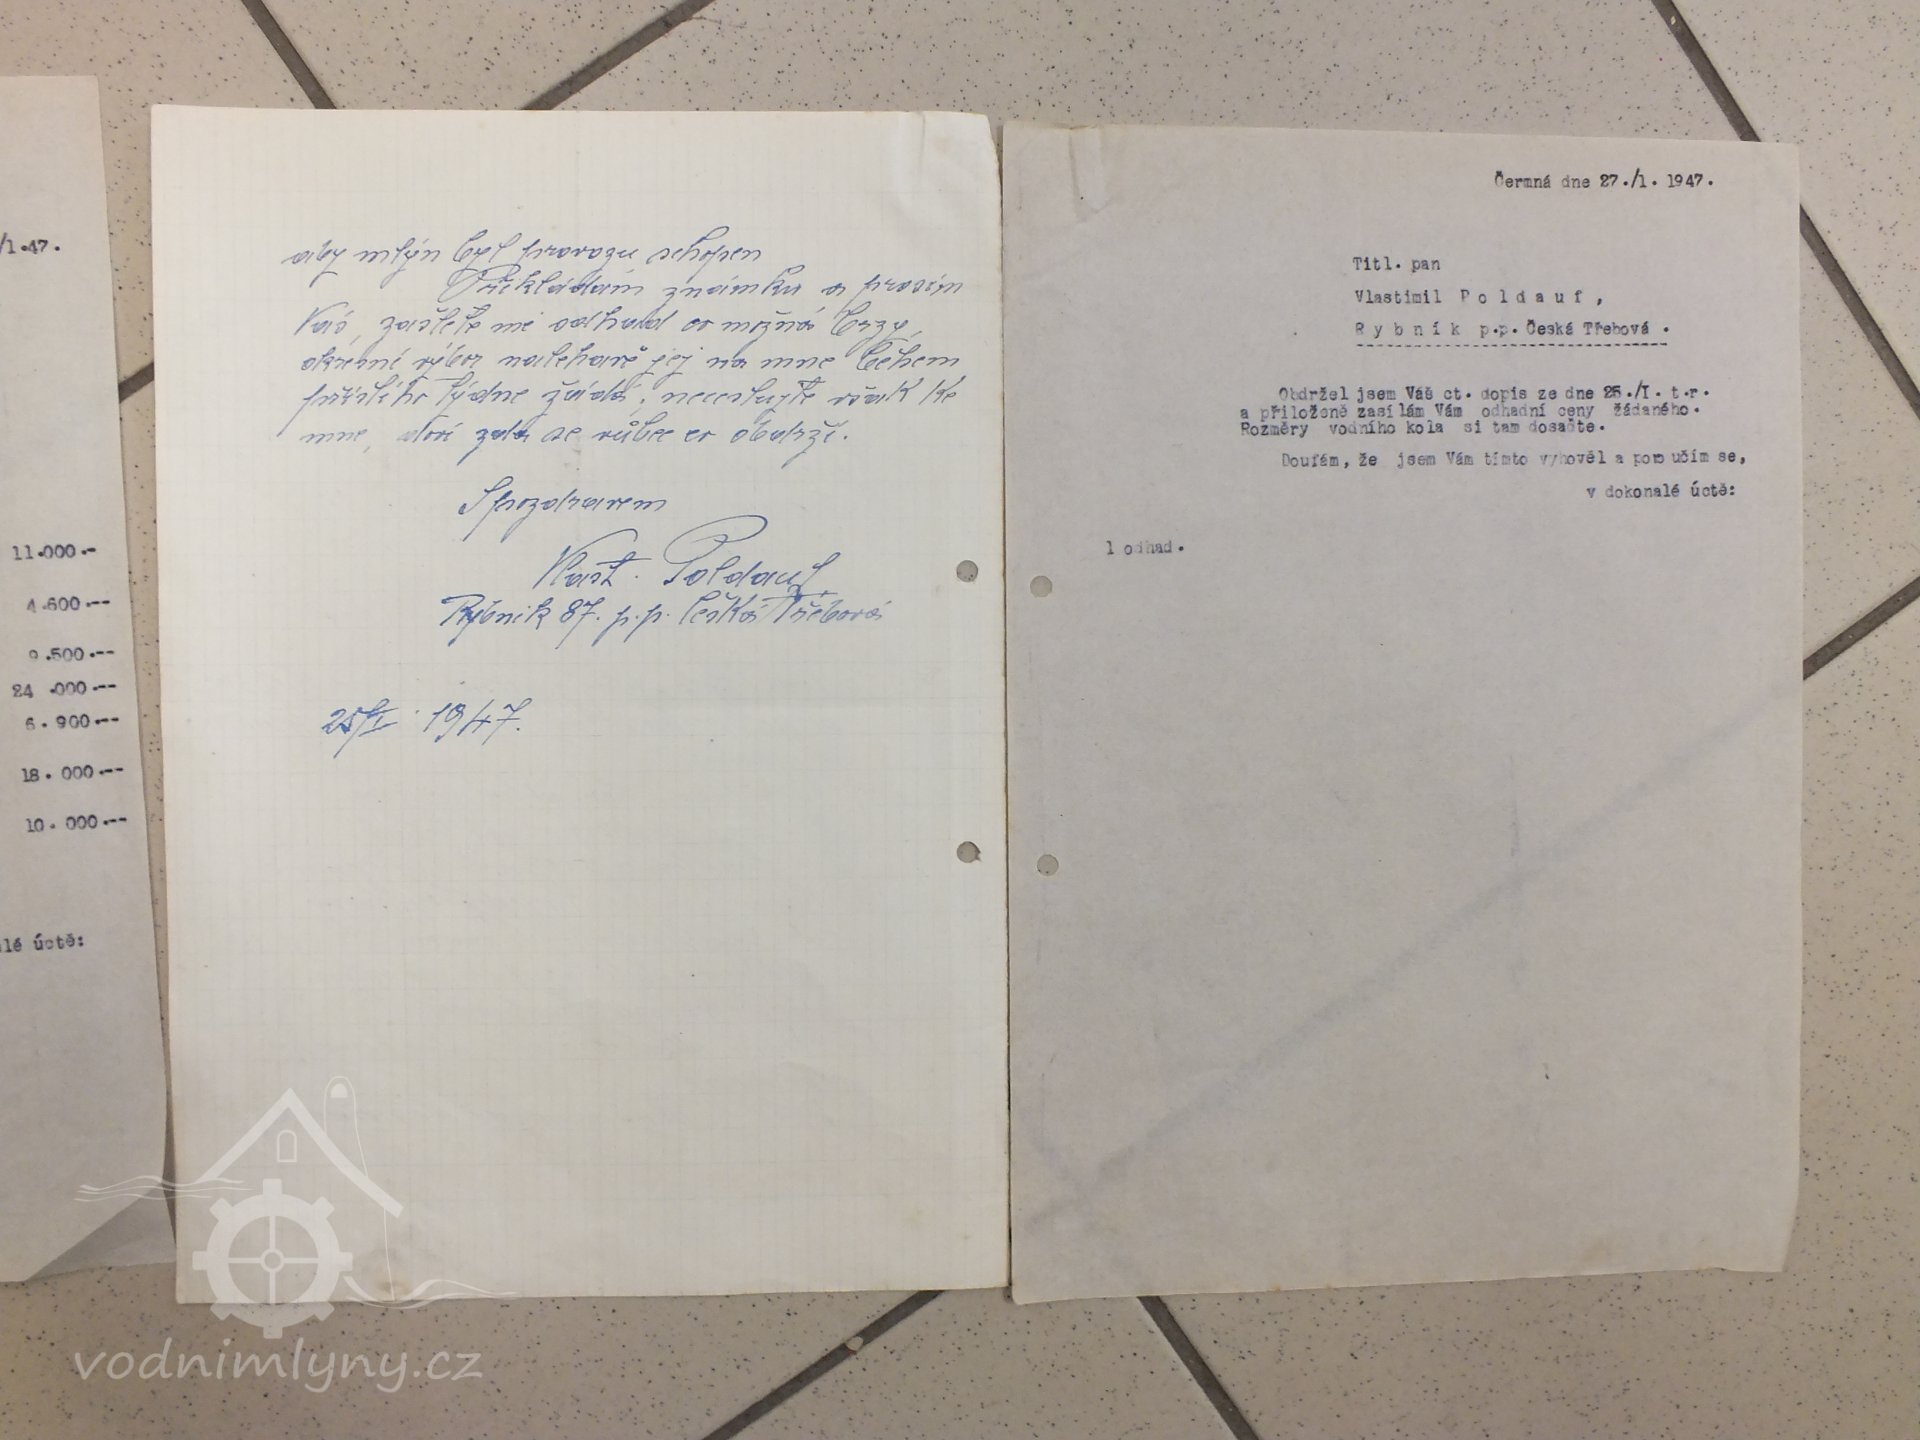 /1.47.
11.000.-
4.600.--
9.500.--
24 .000.--
6.900.--
18.000.--
10.000.--
lé úctě:
aby mlýn byl provozu schopen
Přikládám známku a prosím
Vás, zašlete mě odhad co možná brzy,
okresní výbor naléhavě jej na mne během
příštího týdne žádá, necestujte však ke
mne, se vůbec co obdrží.
S pozdravem
Vlast. Poldauf
Rybník 87. p.p. Česká Třebová
25/I. 1947.
Čermná dne 27./1. 1947.
Titl. pan
Vlastimil P o l d a u f ,
R y b n í k p.p. Česká Třebová .
Obdržel jsem Váš ct. dopis ze dne 25./I. t.r.
a přiloženě zasílám Vám odhadní ceny žádaného.
Rozměry vodního kola si tam dosaďte.
Doufám, že jsem Vám tímto vyhověl a poroučím se,
v dokonalé úctě:
1 odhad.
vodnimlyny.cz